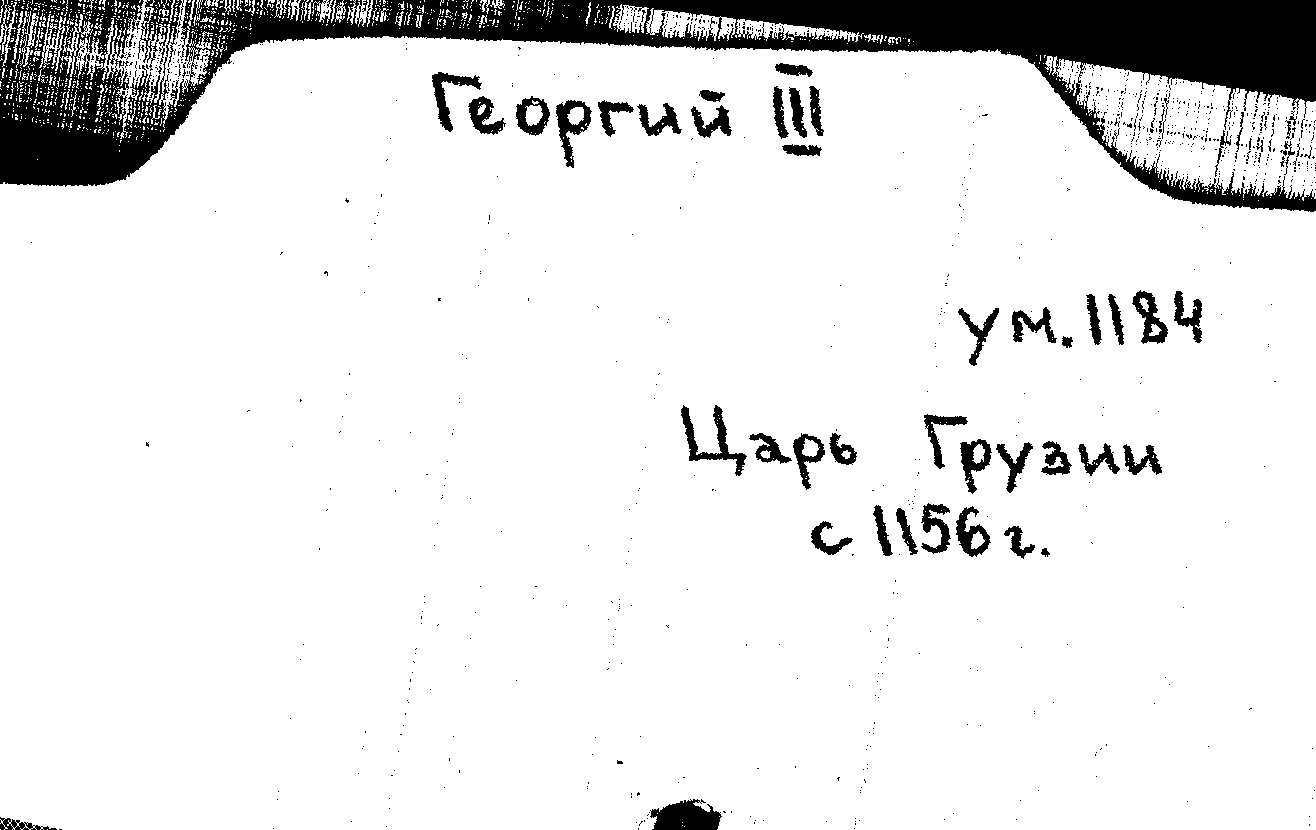 Георгий III
ум. 1184
Царь Грузии
с 1156 г.